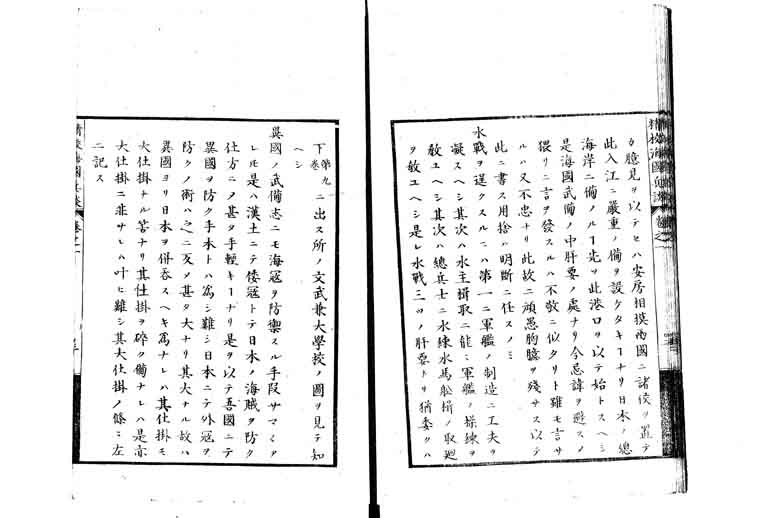 カ臆見ヲ以テセハ安房相摸兩國ニ諸侯ヲ置テ
此入江ニ嚴重ノ備ヲ設ケタキヿナリ日本ノ總
海岸ニ備ノルヿ先ツ此港口ヲ以テ始トスヘシ
是海國武備ノ中肝要ノ處ナリ今忌諱ヲ避スメ
猥リニ言ヲ發スルハ不敬ニ似タリト雖モ言サ
ルハ又不忠ナリ此故ニ頑愚胸臆ヲ殘サス以テ
此ニ書ス用捨ハ明斷ニ任スノミ
水戰ヲ逞クスルニハ第一ニ軍艦ノ制造ニ工夫ヲ
凝スヘシ其次ハ水主揖取ニ能ニ軍艦ノ操練ヲ
敎ユヘシ其次ハ總兵士ニ水練水馬舩揖ノ取廻
ヲ敎ユヘシ是レ水戰三ツノ肝要ナリ猶委クハ
下第九卷ニ出ス所ノ文武兼大學校ノ圖ヲ見テ知
ヘシ
異國ノ武備志ニモ海冦ヲ防禦スル手段サマ〳〵ア
レモ是ハ漢土ニテ倭冦トテ日本ノ海賊ヲ防ク
仕方ニメ甚タ手輕キヿナリ是ヲ以テ吾國ニテ
異國ヲ防ク手本トハ爲シ難シ日本ニテ外冦ヲ
防クノ術ハ之ニ反メ甚タ大ナリ其大ナル故ハ
異國ヨリ日本ヲ併呑スヘキ爲ナレハ其仕掛モ
大仕掛ナル筈ナリ其仕掛ヲ碎ク備ナレハ是亦
大仕掛ニ非サレハ叶ヒ難シ其大仕掛ノ條ニ左
ニ記ス